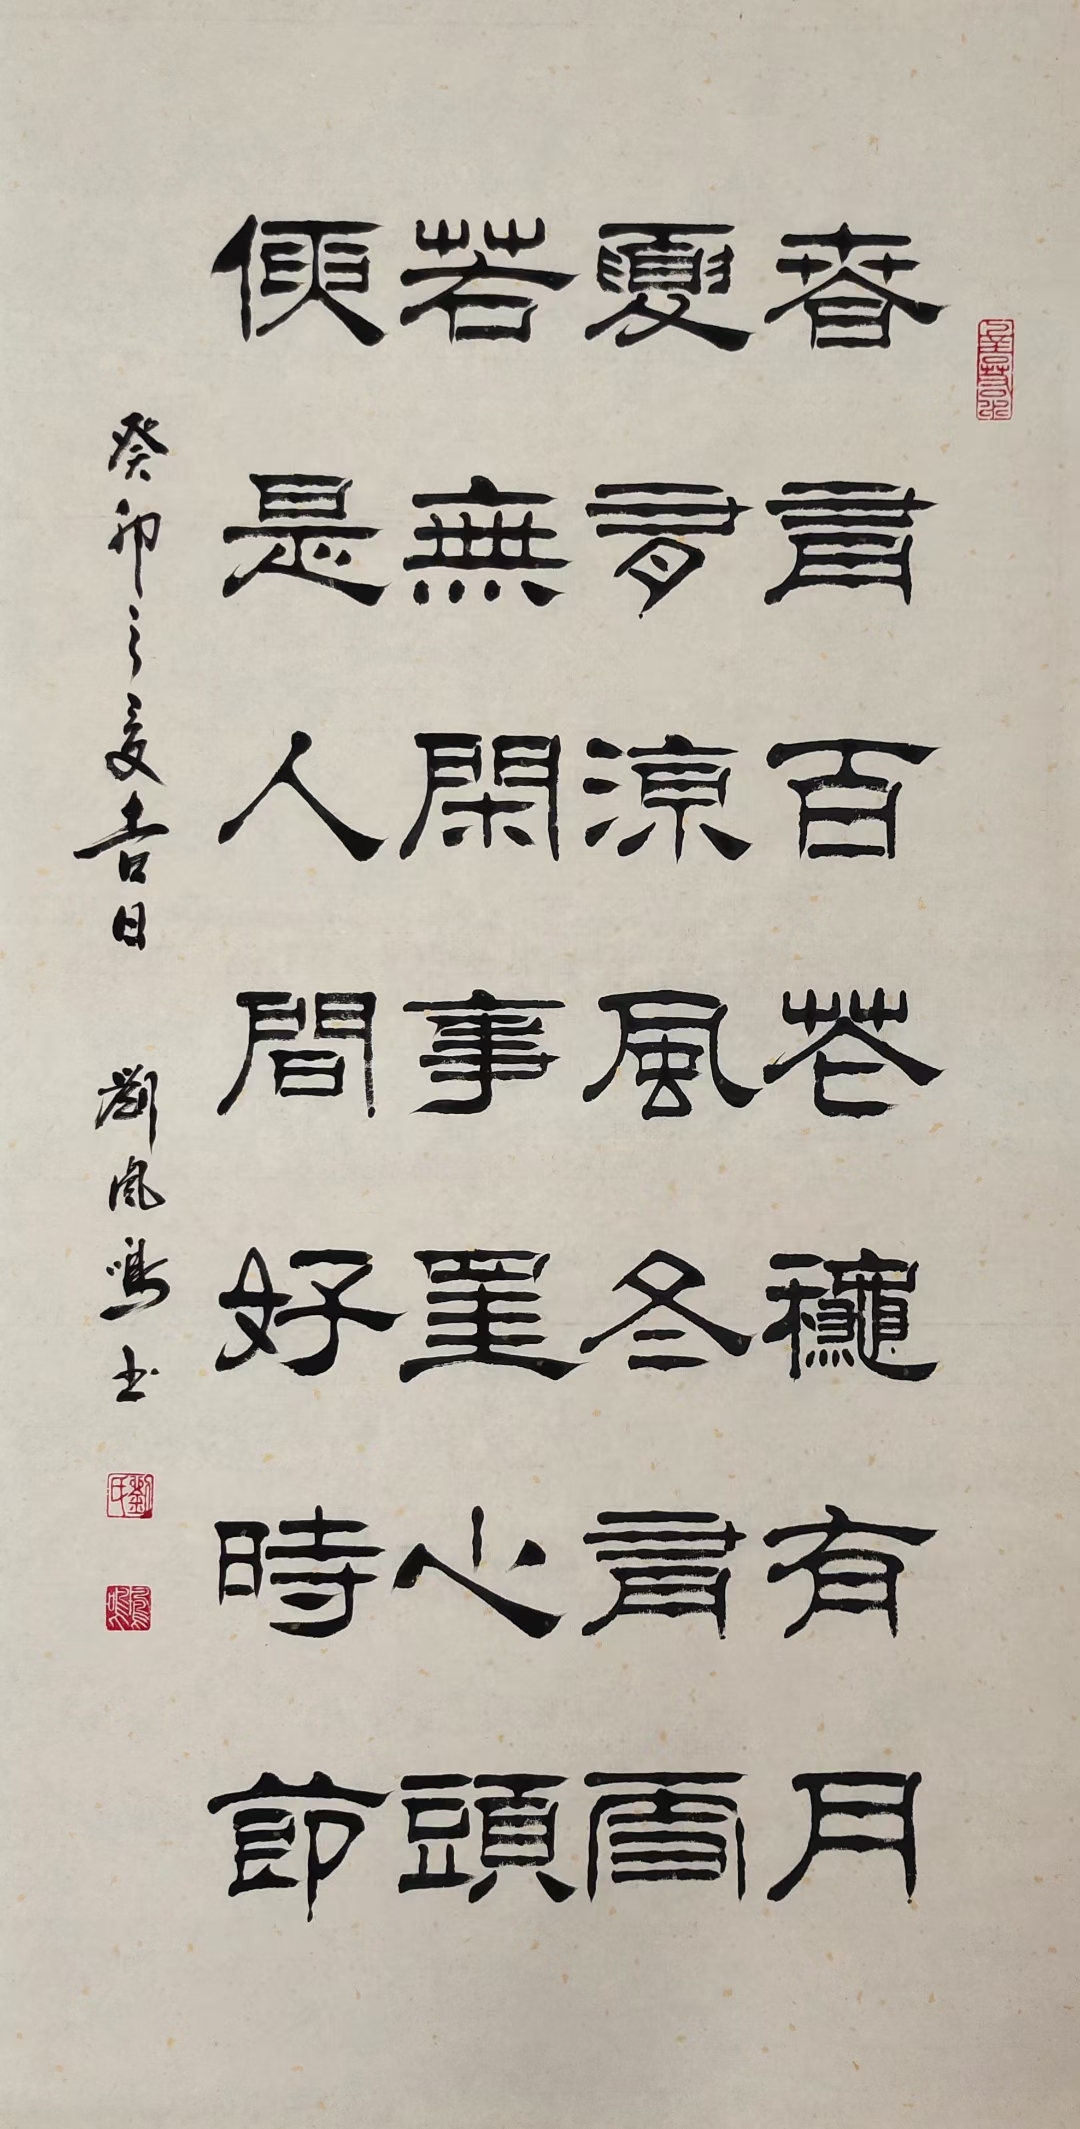 春有百花龝有月
夏有涼風冬有雪
若無閑事罣心頭
便是人間好時節
癸卯之夏吉日 劉鳳鳴书
劉氏
鳳鳴